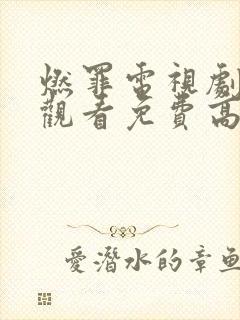 燃罪電視劇
觀看免費高
愛潛水的章魚